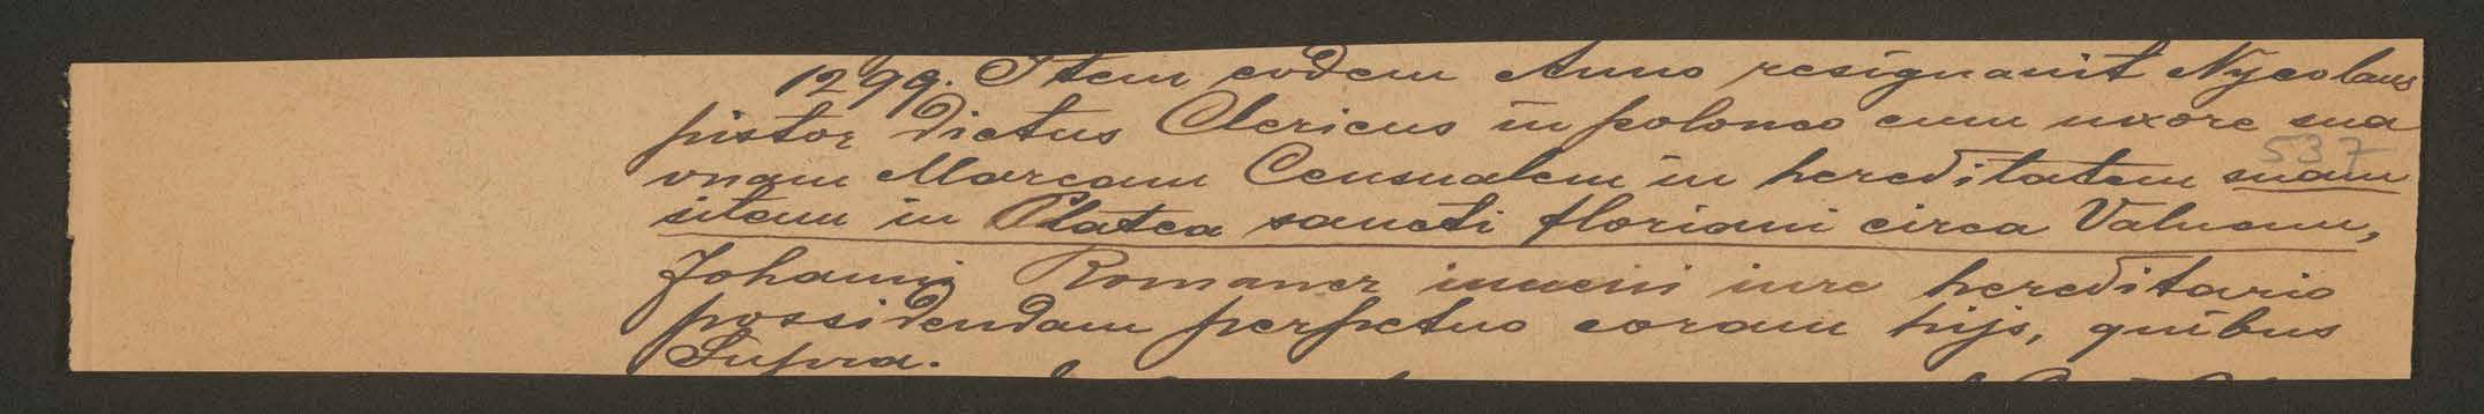 1299. Item eodem Anno resignauit Nycolaus
pistor dictus Clericus in polonco cum uxore sua
537
vnam Marcam Censualem in hereditatem suam
sitam in Platea sancti floriani circa Valuam,
Johanni Romaner iuueni iure hereditario
possidendam perpetuo coram hijs, quibus
Supra.